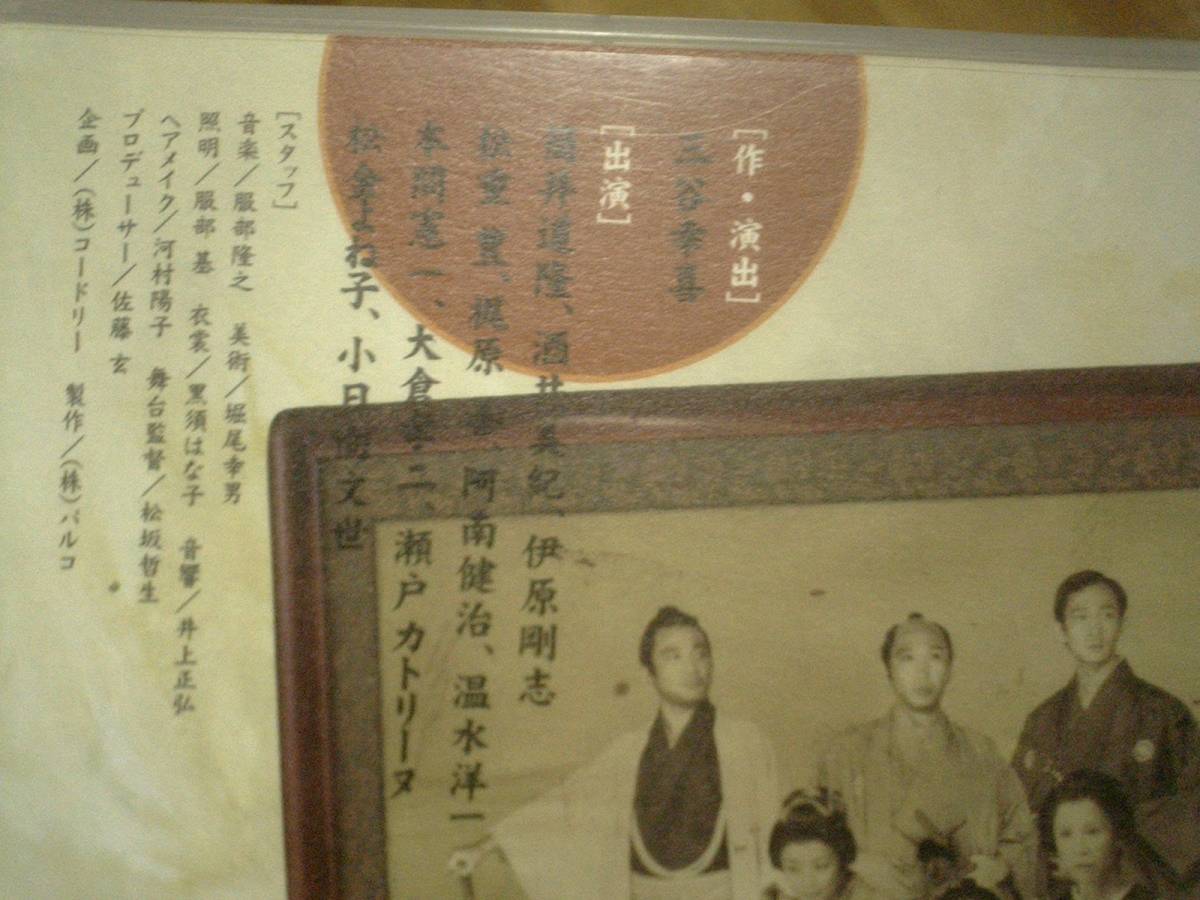 [作・演出]
三谷幸喜
[出演]
筒井道隆、酒井美紀、伊原剛志
松重 豊、梶原 善、阿南健治、温水洋一
本間憲一、大倉孝二、瀬戸 カトリーヌ
松金よね子、小日向文世
[スタッフ]
音楽／服部隆之 美術／堀尾幸男
照明／服部 基 衣裳／黒須はな子 音響／井上正弘
ヘアメイク／河村陽子 舞台監督／松坂哲生
プロデューサー／佐藤 玄
企画／(株)コードリー 製作／(株)パルコ